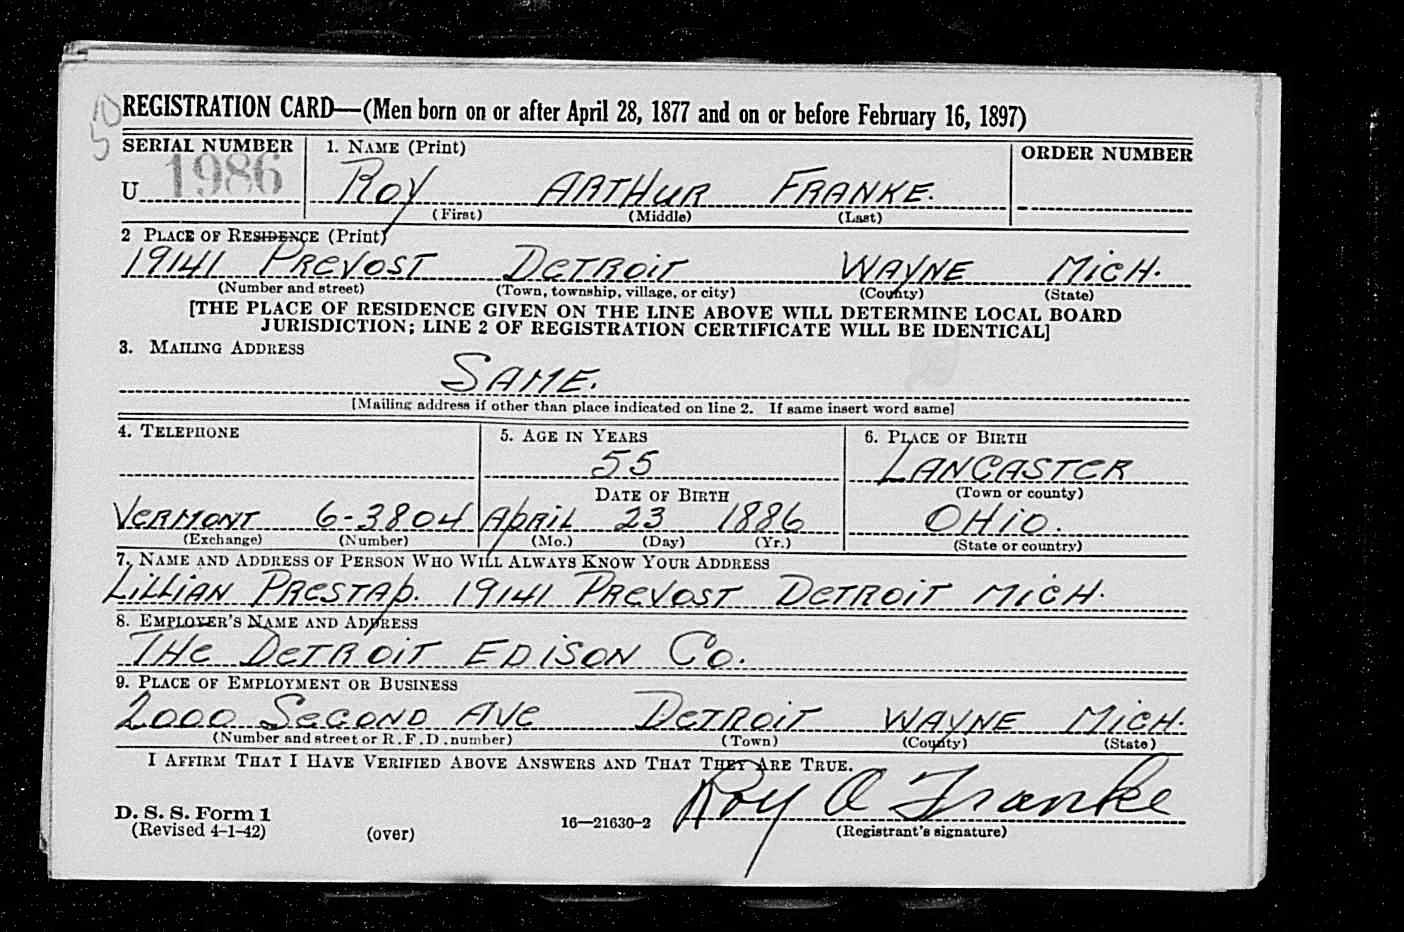 REGISTRATION CARD—(Men born on or after April 28, 1877 and on or before February 16, 1897)
SERIAL NUMBER
1. NAME (Print)
ORDER NUMBER
U 1986
ROY ARTHUR FRANKE.
(First) (Middle) (Last)
2 PLACE OF RESIDENCE (Print)
19141 PREVOST DETROIT WAYNE MICH.
(Number and street) (Town, township, village, or city) (County) (State)
[THE PLACE OF RESIDENCE GIVEN ON THE LINE ABOVE WILL DETERMINE LOCAL BOARD
JURISDICTION; LINE 2 OF REGISTRATION CERTIFICATE WILL BE IDENTICAL]
3. MAILING ADDRESS
SAME.
[Mailing address if other than place indicated on line 2. If same insert word same]
4. TELEPHONE
5. AGE IN YEARS
6. PLACE OF BIRTH
55
LANCASTER
DATE OF BIRTH
(Town or county)
VERMONT 6-3804
APRIL 23 1886
OHIO.
(Exchange) (Number)
(Mo.) (Day) (Yr.)
(State or country)
7. NAME AND ADDRESS OF PERSON WHO WILL ALWAYS KNOW YOUR ADDRESS
LILLIAN PRESTAP. 19141 PREVOST DETROIT MICH.
8. EMPLOYER'S NAME AND ADDRESS
THE DETROIT EDISON CO.
9. PLACE OF EMPLOYMENT OR BUSINESS
2000 SECOND AVE DETROIT WAYNE MICH.
(Number and street or R.F.D. number) (Town) (County) (State)
I AFFIRM THAT I HAVE VERIFIED ABOVE ANSWERS AND THAT THEY ARE TRUE.
Roy A Franke
D. S. S. Form 1
(Revised 4-1-42)
(over)
16—21630-2
(Registrant's signature)